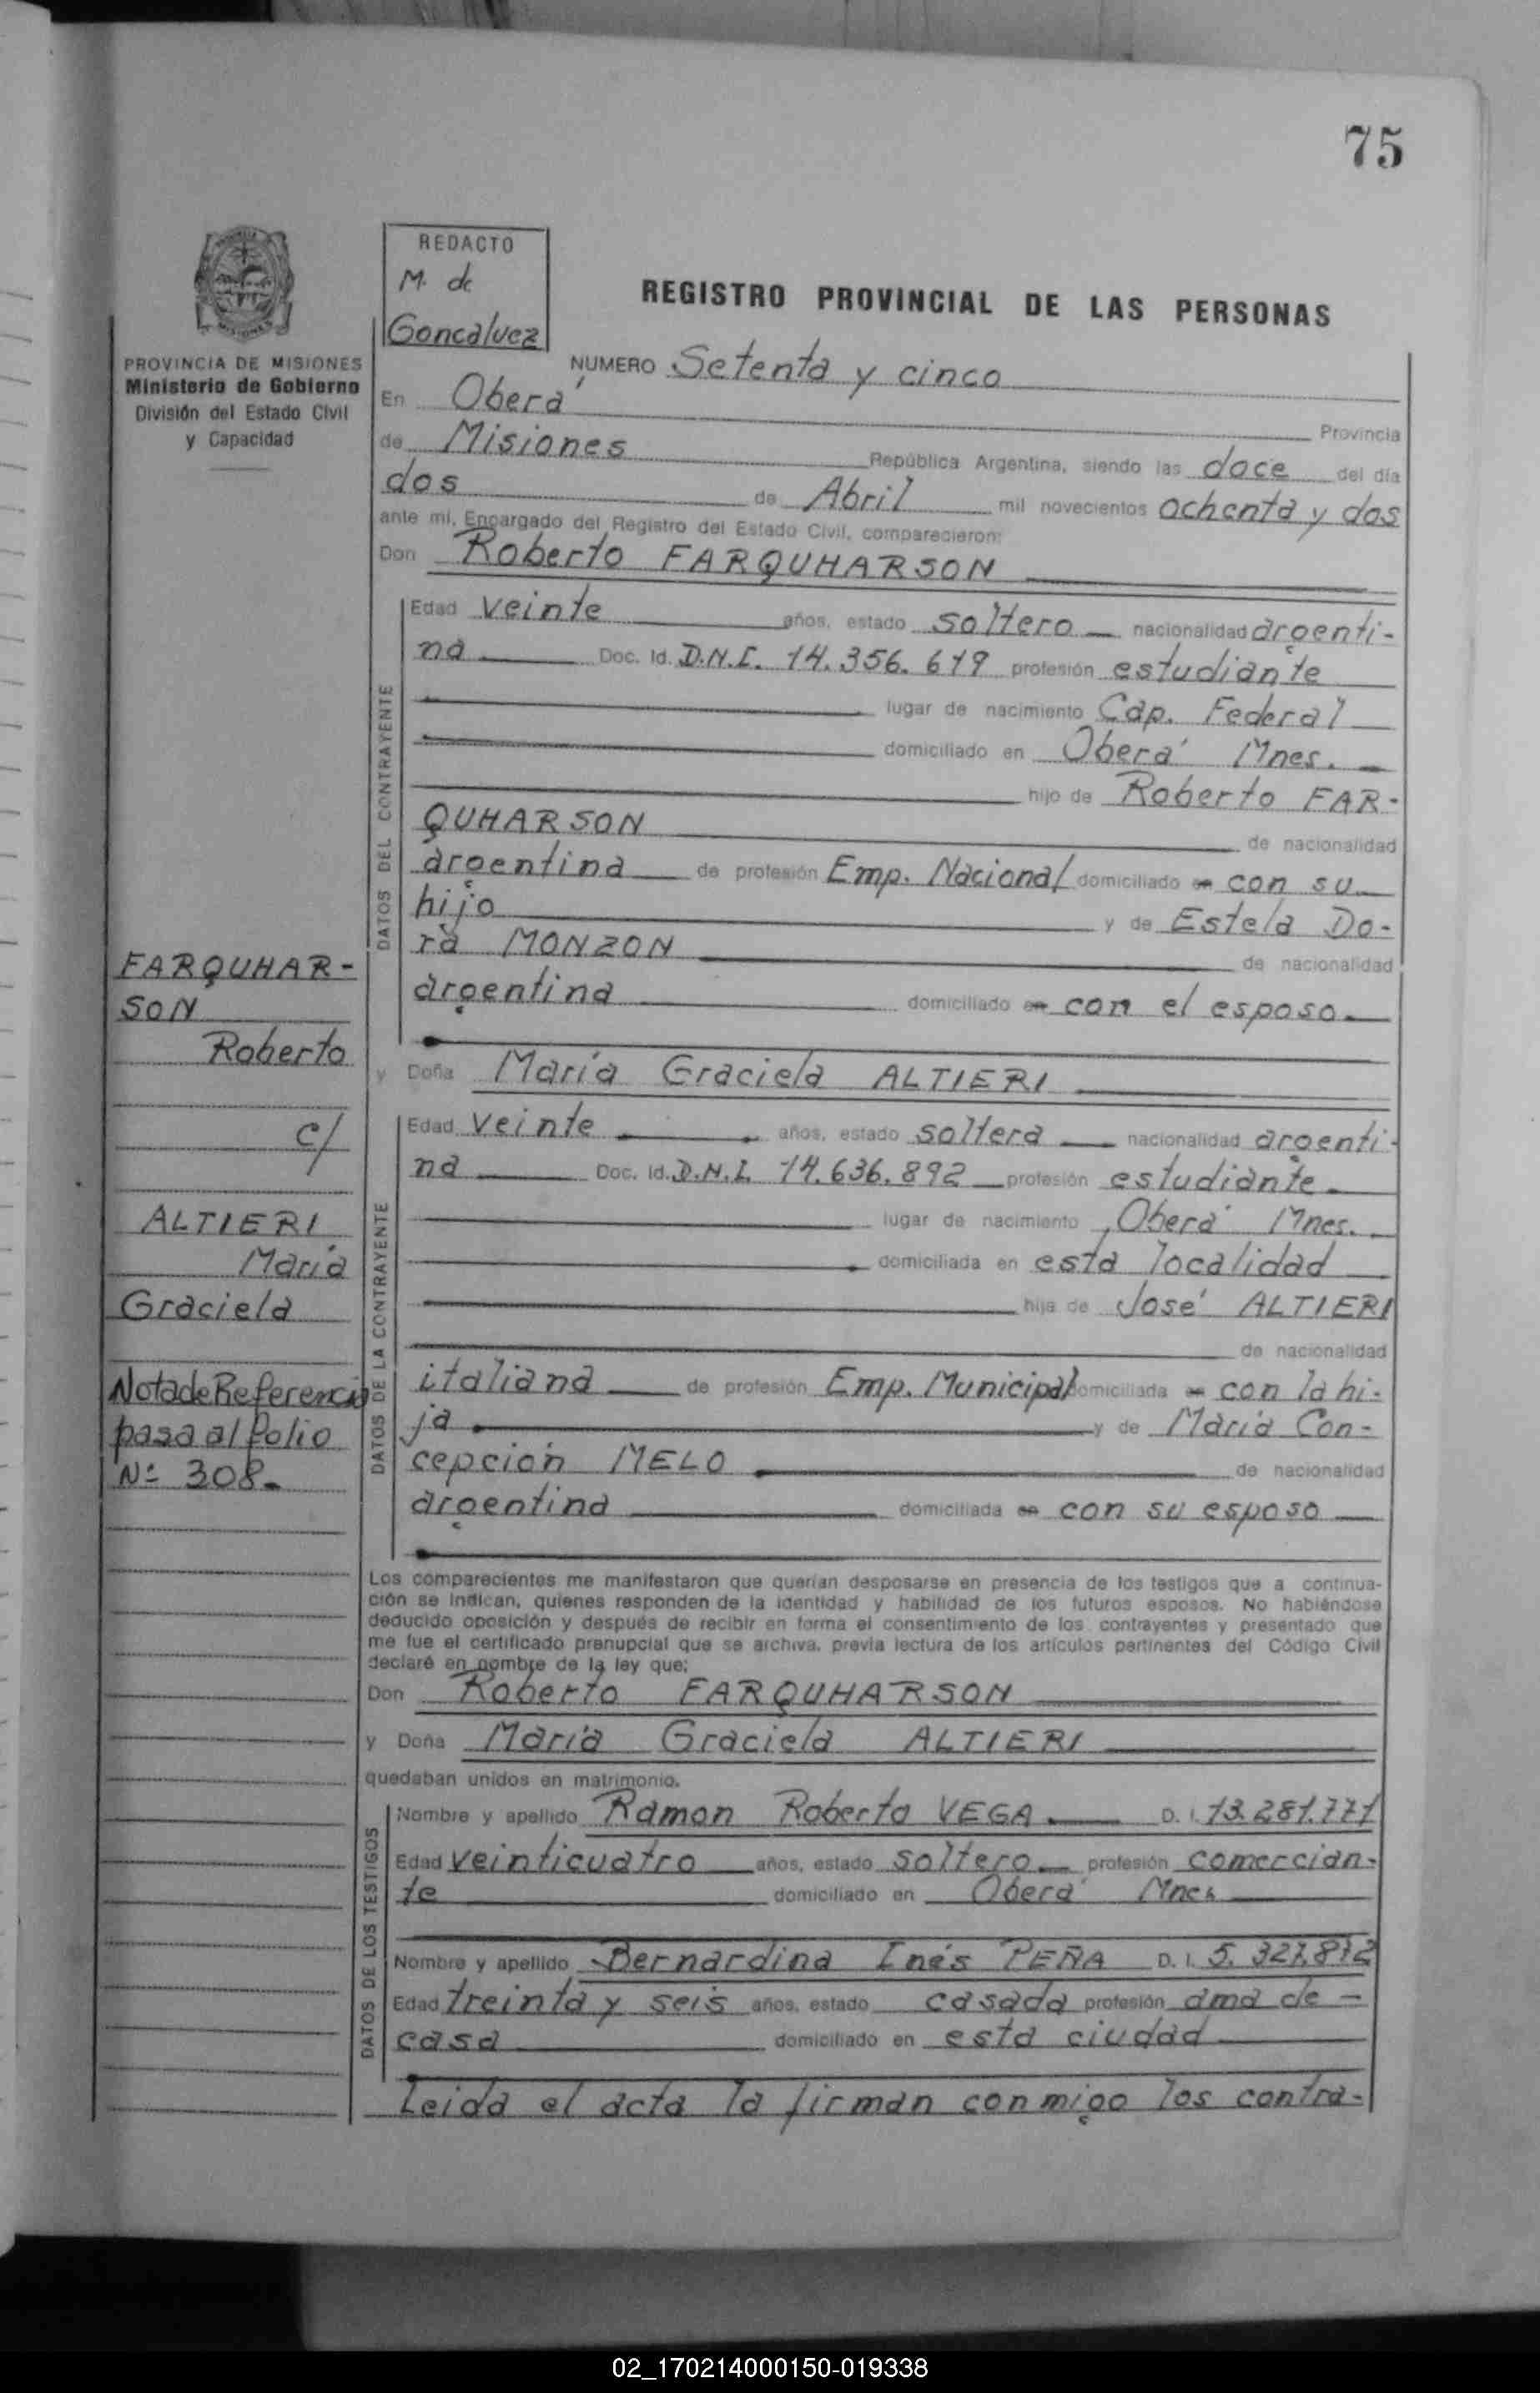 75
REDACTO
M. de
Goncalvez
REGISTRO PROVINCIAL DE LAS PERSONAS
PROVINCIA DE MISIONES
Ministerio de Gobierno
División del Estado Civil
y Capacidad
NUMERO Setenta y cinco
En Oberá Provincia
de Misiones República Argentina, siendo las doce del día
dos de Abril mil novecientos ochenta y dos
ante mi, Encargado del Registro del Estado Civil, comparecieron:
Don Roberto FARQUHARSON
DATOS DEL CONTRAYENTE
Edad veinte años, estado soltero nacionalidad argenti-
na Doc. Id. D.N.I. 14.356.619 profesión estudiante
lugar de nacimiento Cap. Federal
domiciliado en Oberá Mnes.
hijo de Roberto FAR-
QUHARSON de nacionalidad
argentina de profesión Emp. Nacional domiciliado en con su
hijo y de Estela Do-
ra MONZON de nacionalidad
argentina domiciliado en con el esposo
y Doña María Graciela ALTIERI
DATOS DE LA CONTRAYENTE
Edad veinte años, estado soltera nacionalidad argenti-
na Doc. Id. D.N.I. 14.636.892 profesión estudiante
lugar de nacimiento Oberá Mnes.
domiciliada en esta localidad
hija de José ALTIERI
de nacionalidad
italiana de profesión Emp. Municipal domiciliada en con la hi-
ja y de María Con-
cepción MELO de nacionalidad
argentina domiciliada en con su esposo
FARQUHAR-
SON
Roberto
c/
ALTIERI
María
Graciela
Nota de Referencia
pasa al folio
Nº 308-
Los comparecientes me manifestaron que querían desposarse en presencia de los testigos que a continua-
ción se indican, quienes responden de la identidad y habilidad de los futuros esposos. No habiéndose
deducido oposición y después de recibir en forma el consentimiento de los contrayentes y presentado que
me fue el certificado prenupcial que se archiva, previa lectura de los artículos pertinentes del Código Civil
declaré en nombre de la ley que:
Don Roberto FARQUHARSON
y Doña María Graciela ALTIERI
quedaban unidos en matrimonio.
DATOS DE LOS TESTIGOS
Nombre y apellido Ramon Roberto VEGA D. I. 13.281.771
Edad veinticuatro años, estado soltero profesión comercian-
te domiciliado en Oberá Mnes
Nombre y apellido Bernardina Inés PEÑA D. I. 5.327.812
Edad treinta y seis años, estado casada profesión ama de -
casa domiciliado en esta ciudad
Leida el acta la firman conmigo los contra-
02_170214000150-019338